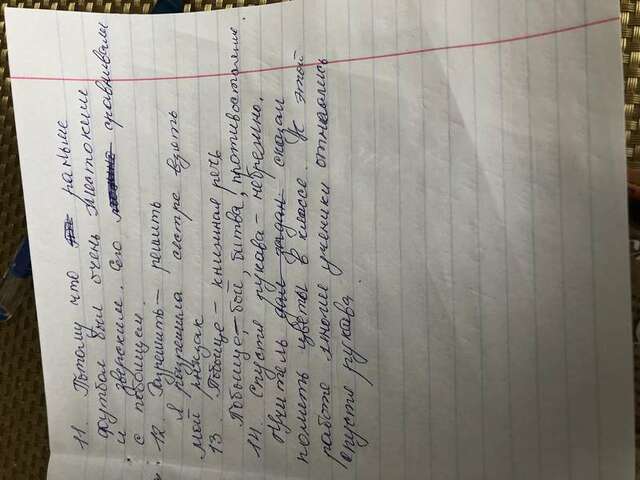 11. Потому что раньше
футбол был очень жестоким
и зверским. Его сравнивали
с побоищем.
12. Разрешить - решить
Я разрешила сестре взять
мой рюкзак
13. Побоище - книжная речь
Побоище - бой, битва, противостояние
14. Спустя рукава - небрежно.
Учитель дал задан сказал
помыть цветы в классе. К этой
работе многие ученики относились
спустя рукава